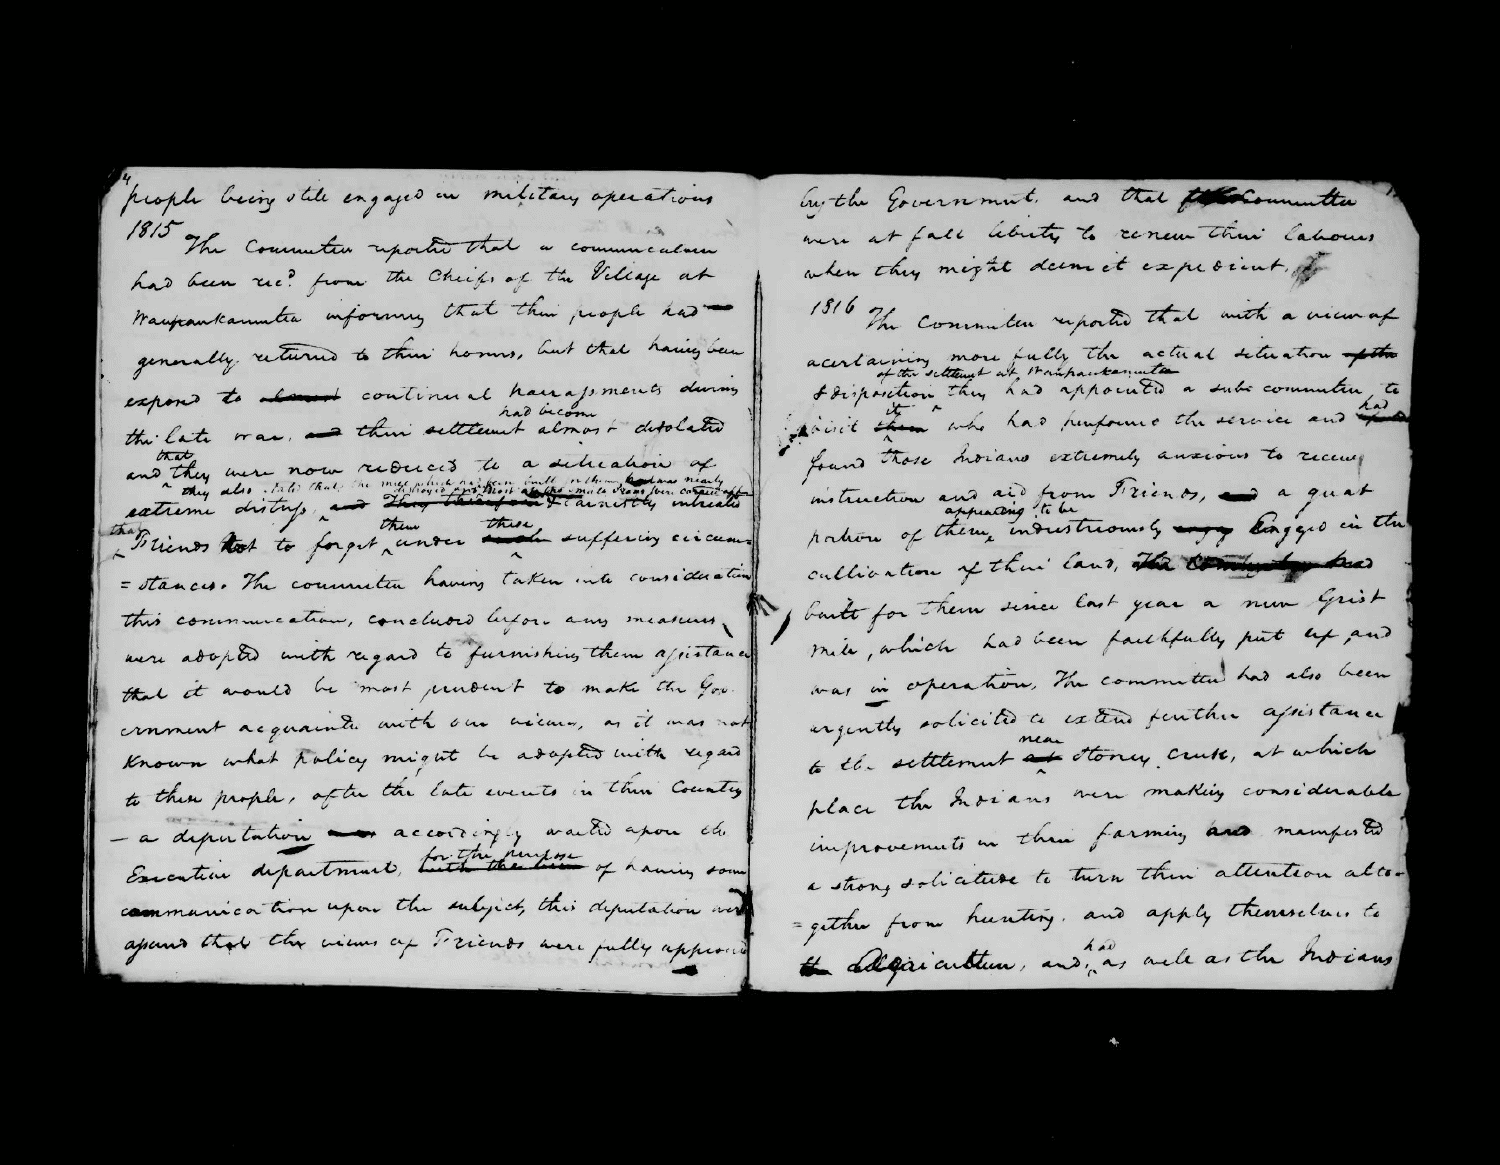 people being still engaged in military operations
1815
The Committee reported that a communication
had been rec'd from the Cheifs of the Village at
Waupaukannetta informing that their people had
generally returned to their homes, but that having been
exposed to almost continual harrassments during
had become
the late war, and their settlement almost desolated
that
and they were now reduced to a situation of
they also stated that the mill which had been built for them had been nearly
destroyed and most of the mill Irons
extreme distress, and They therefore & earnestly intreated
that them these
Friends not to forget under such suffering circum=
=stances. The committee having taken into consideration
this communication, concluded before any measures
were adopted with regard to furnishing them assistance
that it would be most prudent to make the Gov-
ernment acquainted with our views, as it was not
known what policy might be adopted with regard
to these people, after the late events in their Country
— a deputation accordingly waited upon the
for the purpose
Executive department, with the view of having some
communication upon the subject, this deputation were
assured that the views of Friends were fully approved
by the Government, and that the Committee
were at full liberty to renew their labours
when they might deem it expedient.
1816
The Committee reported that with a view of
acertaining more fully the actual situation of the
of the settlemt at Waupaukannetta
& disposition they had appointed a sub-committee to
it had
visit them who had performed the service and
found those Indians extremely anxious to receive
instruction and aid from Friends, and a great
appearing to be
portion of them industriously engag Engaged in the
cultivation of their land, The Committee had
built for them since last year a new Grist
mill, which had been faithfully put up, and
was in operation. The committee had also been
urgently solicited to extend further assistance
near
to the settlement at Stoney creek, at which
place the Indians were making considerable
improvements in their farming and manifested
a strong solicitude to turn their attention alto=
=gether from hunting, and apply themselves to
had
the Agriculture, and, as well as the Indians